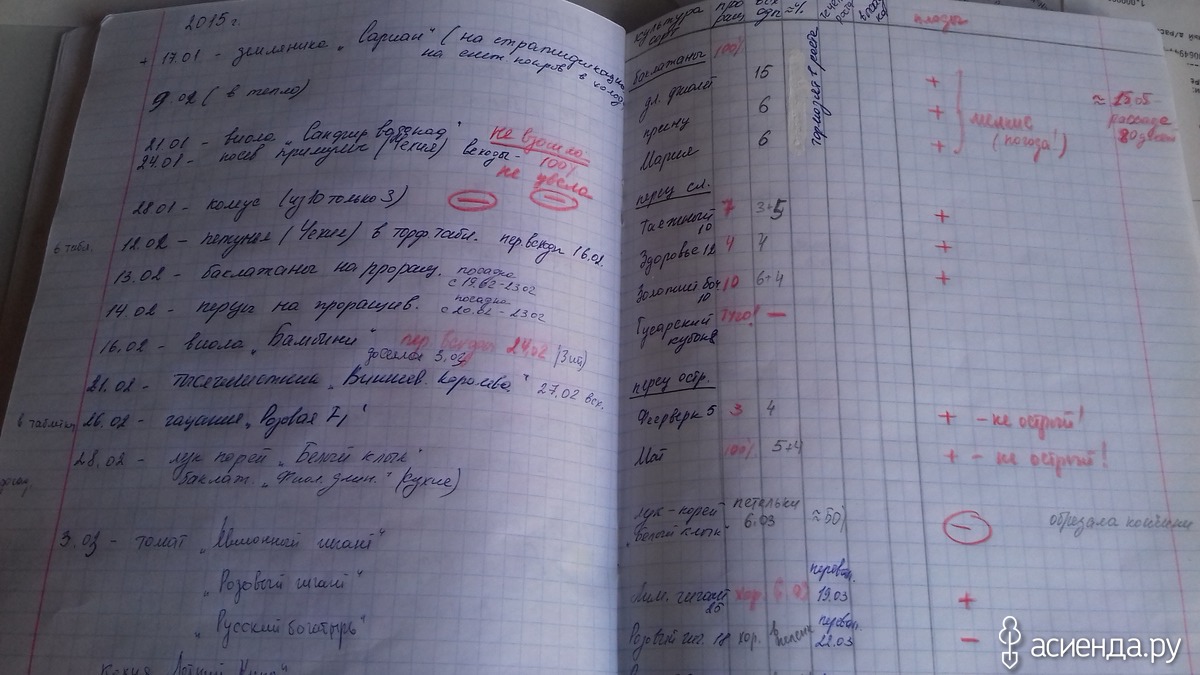 2015 г.
+ 17.01 - земляника „Сариан" (на стратификацию
на снег, накров в холод.
9.02 (в тепло)
21.01 - виола „Сандгир водопад"
не взошло
24.01 - посев примулы (Чехия) всходы - 100%
не цвела
28.01 - колеус (из 10 только 3) — —
в табл. 12.02 - петунья (Чехия) в торф. табл. пер. всходы 16.02.
13.02 - баклажаны на проращ. посадка
с 19.02 - 23.02
14.02 - перцы на проращив. посадка
с 20.02 - 23.02
16.02 - виола „Бамбини" пер. всходы 24.02 (3 шт)
досеяла 3.03
21.02 - тысячелистник „Вишнев. королева." 27.02 всх.
в таблетку 26.02 - гацания „Розовая F1"
28.02 - лук порей „Белый клык"
баклаж. „Фиол. длин." (сухие)
3.03 - томат „Лимонный гигант"
„Розовый гигант"
„Русский богатырь"
кохия „Летний
культура сорт про ращ. всх оды ≈%
тормозят в росте
плоды
баклажаны 100%
дл. фиолет 15 +
принц 6 + мелкие (погода!)
Мария 6 +
≈ 25.05 -
рассада
80 дней
перец сл.
Таежный 10 7 3+5 +
Здоровье 12 4 4 +
Золотий боч 10 10 6+4 +
Гусарский —
перец остр.
Фейерверк 5 3 4 + - не острый!
Мат 100% 5+4 + - не острый!
лук-порей „Белый клык" петельки 6.03 ≈50% — обрезала кончики
Лим. гигант 25 хор. 6.03 перевал. 19.03 +
Розовый гиг. 18 хор. перевал. 22.03 —
асиенда.ру